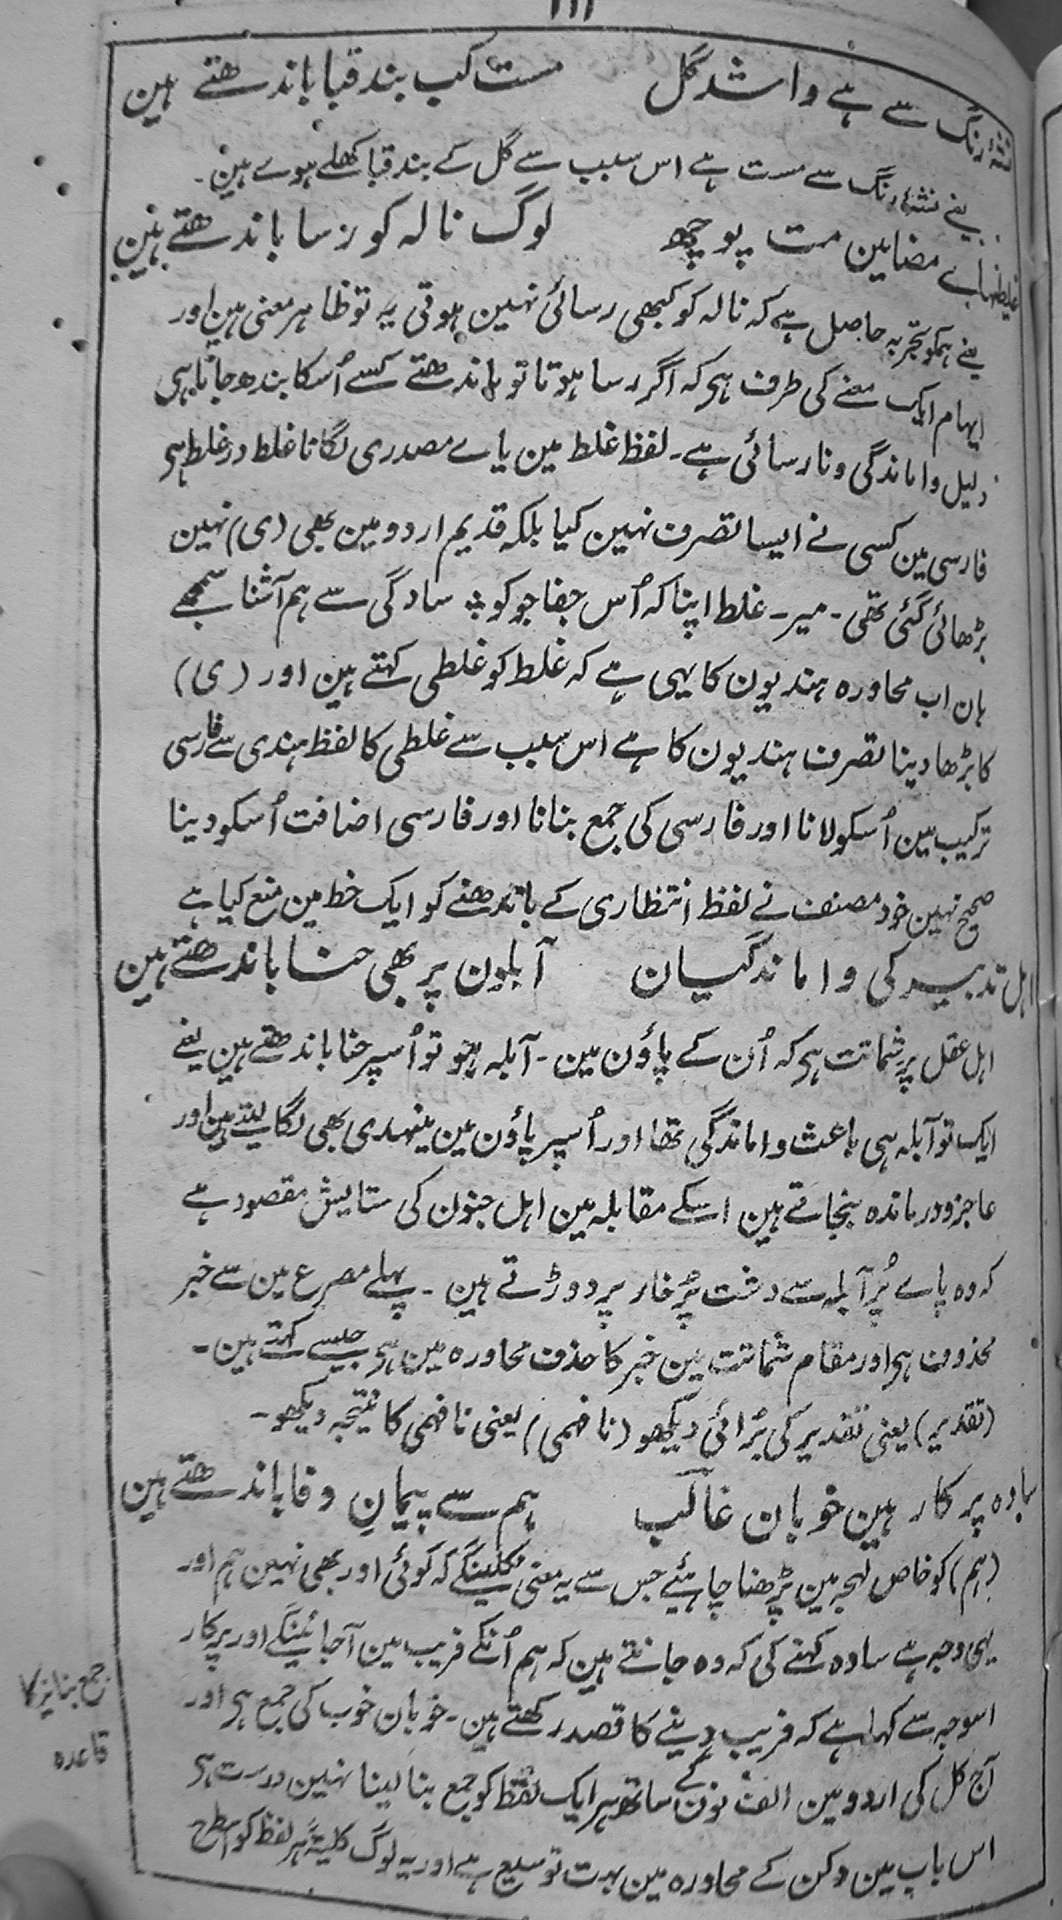 ۱۱۱
نشۂ رنگ سے ہے واشدِ گل     مست کب بند قبا باندھتے ہین
یعنے نشۂ رنگ سے مست ہے اس سبب سے گل کے بند قبا کھلے ہوے ہین۔
غلطیہاے مضامین مت پوچھ     لوگ نالہ کو رسا باندھتے ہین
یعنے ہمکو تجربہ حاصل ہے کہ نالہ کو کبھی رسائی نہین ہوتی یہ تو ظاہر معنی ہین اور
ایہام ایک معنے کی طرف ہی کہ اگر رسا ہوتا تو باندھتے کسے اُسکا بندھ جانا ہی
دلیل واماندگی و نارسائی ہے۔ لفظ غلط مین یاے مصدری لگانا غلط در غلط ہی
فارسی مین کسی نے ایسا تصرف نہین کیا بلکہ قدیم اردو مین بھی (ی) نہین
بڑھائی گئی تھی۔ میر۔ غلط اپنا کہ اُس جفا جو کو ؞ سادگی سے ہم آشنا سمجھے
ہان اب محاورہ ہندیون کا یہی ہے کہ غلط کو غلطی کہتے ہین اور (ی)
کا بڑھا دینا تصرف ہندیون کا ہے اس سبب سے غلطی کا لفظ ہندی سے فارسی
ترکیب مین اُسکو لانا اور فارسی کی جمع بنانا اور فارسی اضافت اُسکو دینا
صحیح نہین خود مصنف نے لفظ انتظاری کے باندھنے کو ایک خط مین منع کیا ہے
اہل تدبیر کی واماندگیان     آبلون پر بھی حنا باندھتے ہین
اہل عقل پر شماتت ہی کہ اُن کے پاؤن مین۔ آبلہ ہو تو اُسپر حنا باندھتے ہین یعنے
ایک تو آبلہ ہی باعث واماندگی تھا اور اُسپر پاؤن مین مینہدی بھی لگا لیتے ہین اور
عاجز و درماندہ بنجاتے ہین اسکے مقابلہ مین اہل جنون کی ستایش مقصود ہے
کہ وہ پاے پُر آبلہ سے دشت پُر خار پر دوڑتے ہین۔ پہلے مصرع مین سے خبر
محذوف ہی اور مقام شماتت مین خبر کا حذف محاورہ مین ہی جیسے کہتے ہین۔
(تقدیر) یعنی تقدیر کی بُرائی دیکھو (نافہمی) یعنی نافہمی کا نتیجہ دیکھو۔
سادہ پرکار ہین خوبان غالب     ہم سے پیمانِ وفا باندھتے ہین
(ہم) کو خاص لہجہ مین پڑھنا چاہئیے جس سے یہ معنی نکلینگے کہ کوئی اور بھی نہین ہم اور
یہی وجہ ہے سادہ کہنے کی کہ وہ جانتے ہین کہ ہم اُنکے فریب مین آجائینگے اور پرکار
اسوجہ سے کہا ہے کہ فریب دینے کا قصد رکھتے ہین۔ خوبان خوب کی جمع ہی اور
آج کل کی اردو مین الف نون کے ساتھ ہر ایک لفظ کو جمع بنا لینا نہین درست ہی
اس باب مین دکن کے محاورہ مین بہت توسیع ہے اور یہ لوگ کلیۃً ہر لفظ کو اسطرح
جمع بنانیکا
قاعدہ